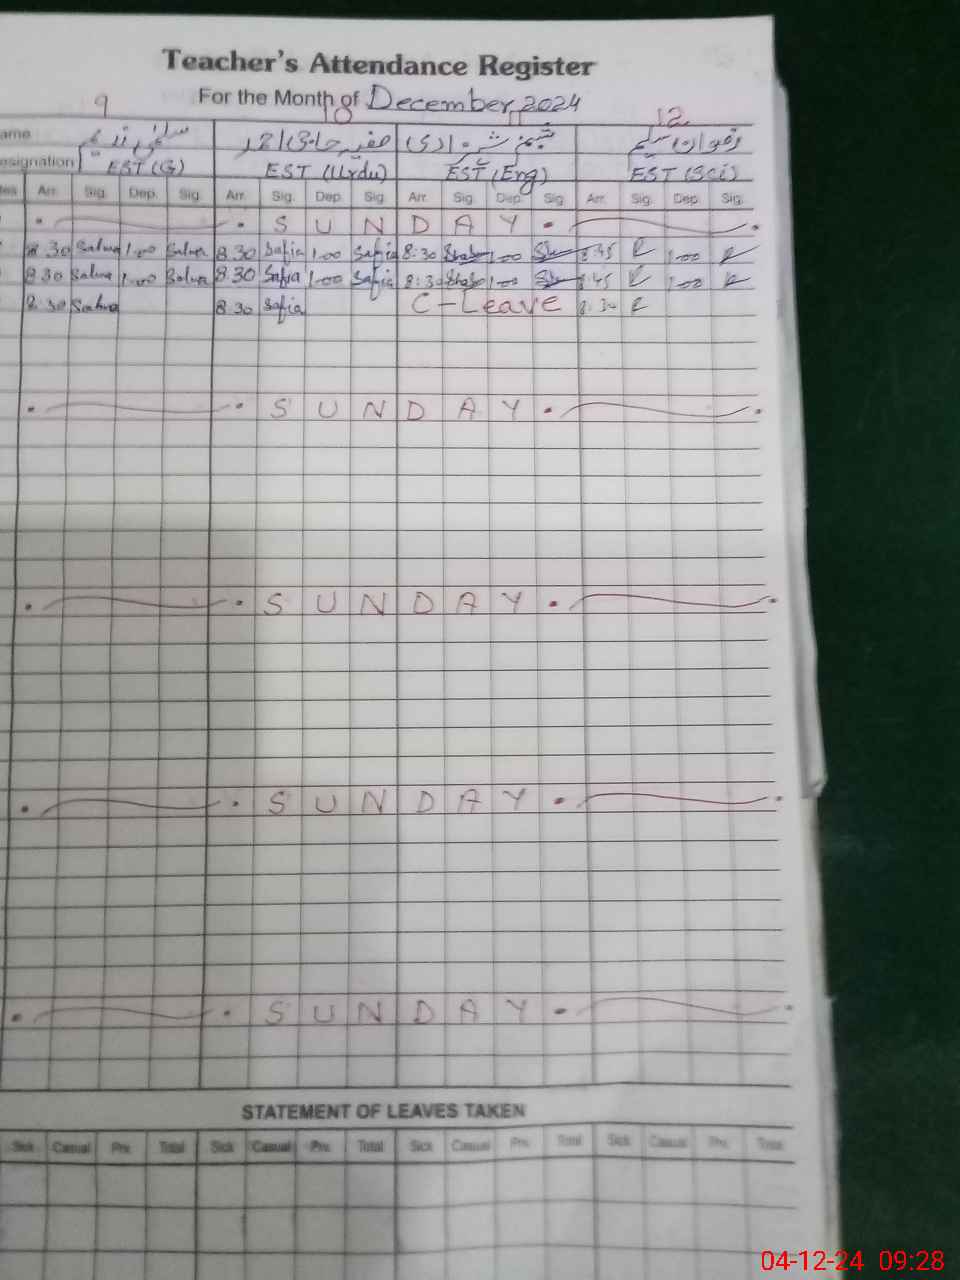 Teacher's Attendance Register
For the Month of December, 2024
9 10 11 12
ame
esignation EST (G) EST (Urdu) EST (Eng) EST (Sci)
tes Arr. Sig. Dep. Sig. Arr. Sig. Dep. Sig. Arr. Sig. Dep. Sig. Arr. Sig. Dep. Sig.
SUNDAY
8 30 Salma 1.00 Salma 8.30 Safia 1.00 Safia 8:30 1.00 8.45 1.00
8.30 Salma 1.00 Salma 8.30 Safia 1.00 Safia 8:30 1.00 8.45 1.00
8.30 Salma 8.30 Safia C-Leave 8.30
SUNDAY
SUNDAY
SUNDAY
SUNDAY
STATEMENT OF LEAVES TAKEN
Sick Casual Prv. Total Sick Casual Prv. Total Sick Casual Prv. Total Sick Casual Prv. Total
04-12-24 09:28